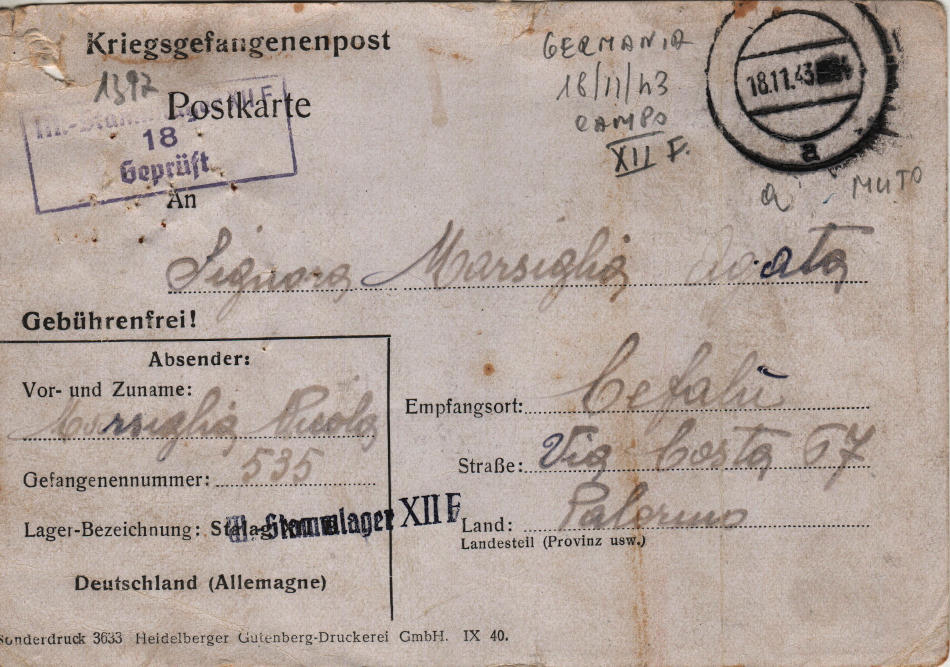 Kriegsgefangenenpost
1397
Postkarte
18
Geprüft
GERMANIA
18/11/43
CAMPO
XII F.
18.11.43
a
a MUTO
An
Signora Marsiglia Agata
Gebührenfrei!
Absender:
Vor- und Zuname:
Marsiglia Nicola
Gefangenennummer: 535
Lager-Bezeichnung: Stalag
M.-Stammlager XII F
Deutschland (Allemagne)
Empfangsort: Cefalù
Straße: Via Costa 67
Land: Palermo
Landesteil (Provinz usw.)
Sonderdruck 3633 Heidelberger Gutenberg-Druckerei GmbH. IX 40.